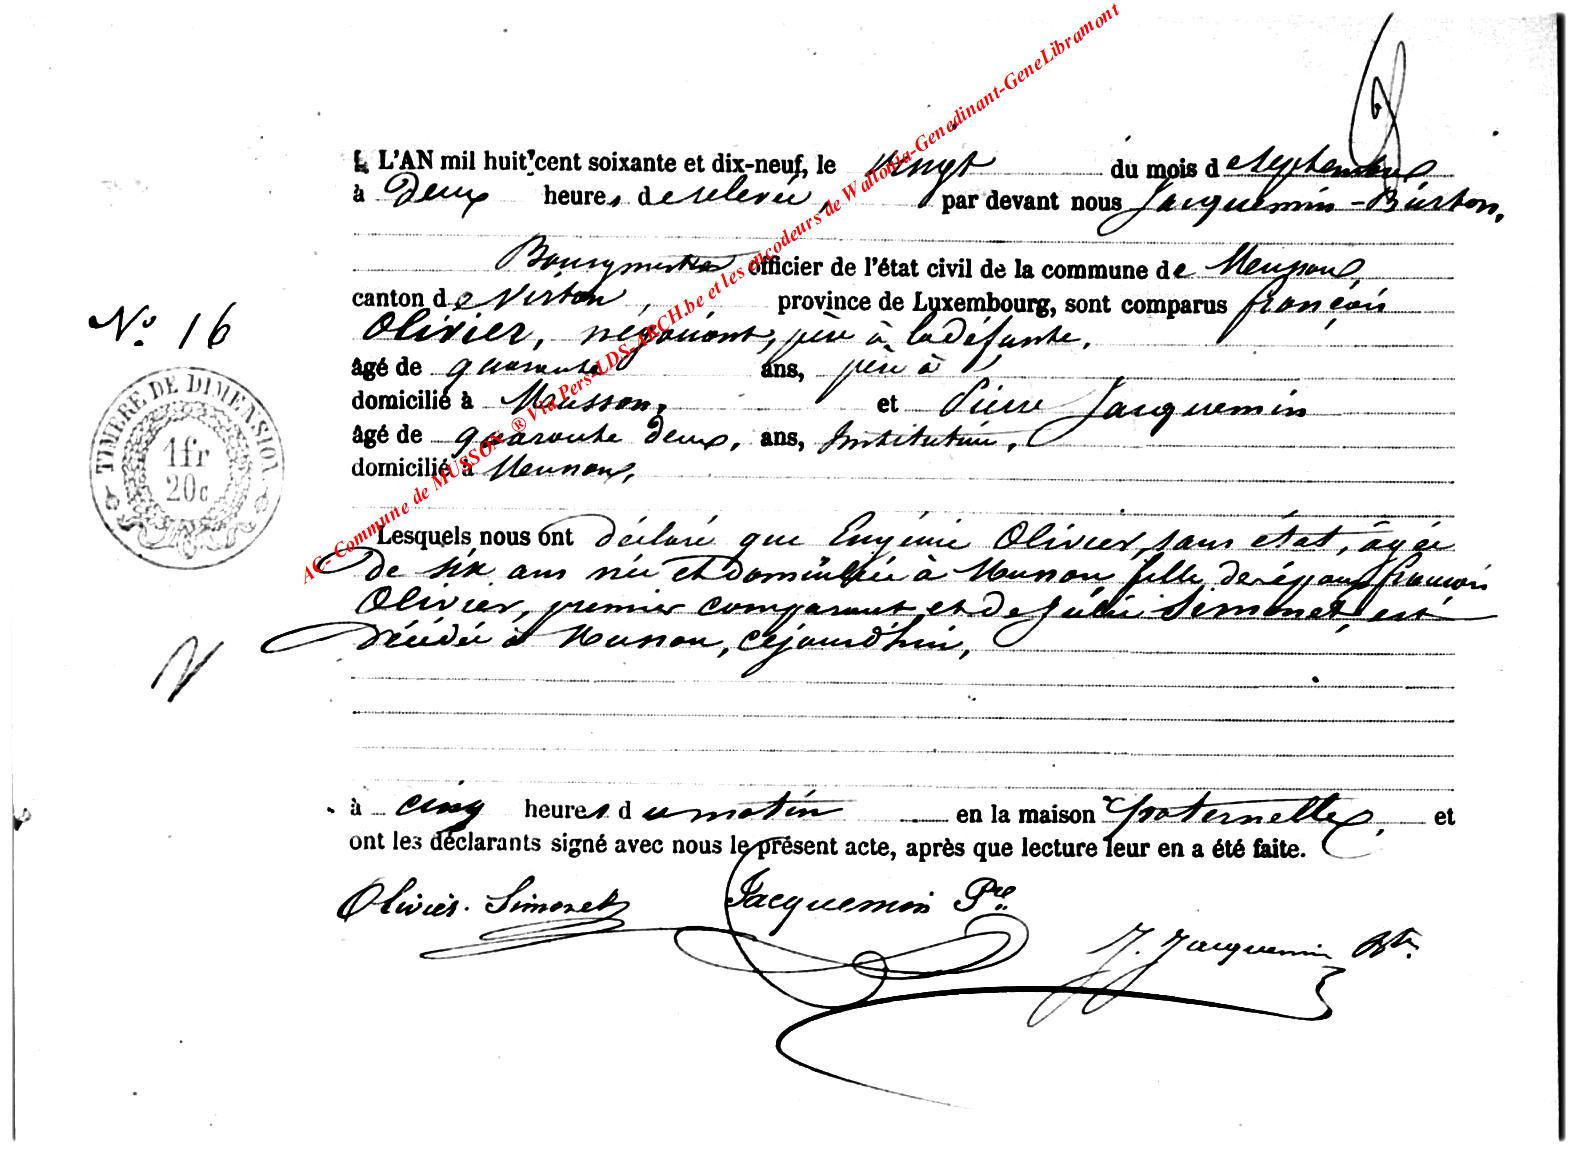 L'AN mil huit cent soixante et dix-neuf, le vingt du mois de septembre
à deux heures de relevée, par devant nous Jacquemin-Burton,
Bourgmestre officier de l'état civil de la commune de Musson,
N° 16
canton de Virton, province de Luxembourg, sont comparus françois
Olivier, négociant, père à la défunte,
âgé de quarante ans, père à
domicilié à Musson, et Pierre Jacquemin
âgé de quarante deux, ans, Instituteur,
domicilié à Musson,
TIMBRE DE DIMENSION
1 fr
20 c
Lesquels nous ont déclaré que Eugénie Olivier, sans état, âgée
de six ans née et domiciliée à Musson fille des époux françois
Olivier, premier comparant et de Julie Simonet, est
décédée à Musson, cejourd'hui,
à cinq heures du matin en la maison paternelle, et
ont les déclarants signé avec nous le présent acte, après que lecture leur en a été faite.
Olivier-Simonet Jacquemin Pre
J. Jacquemin Btn
AC-Commune de MUSSON ® Via Pers-LDS-ARCH.be et les encodeurs de Wallonia-Genedinant-GeneLibramont